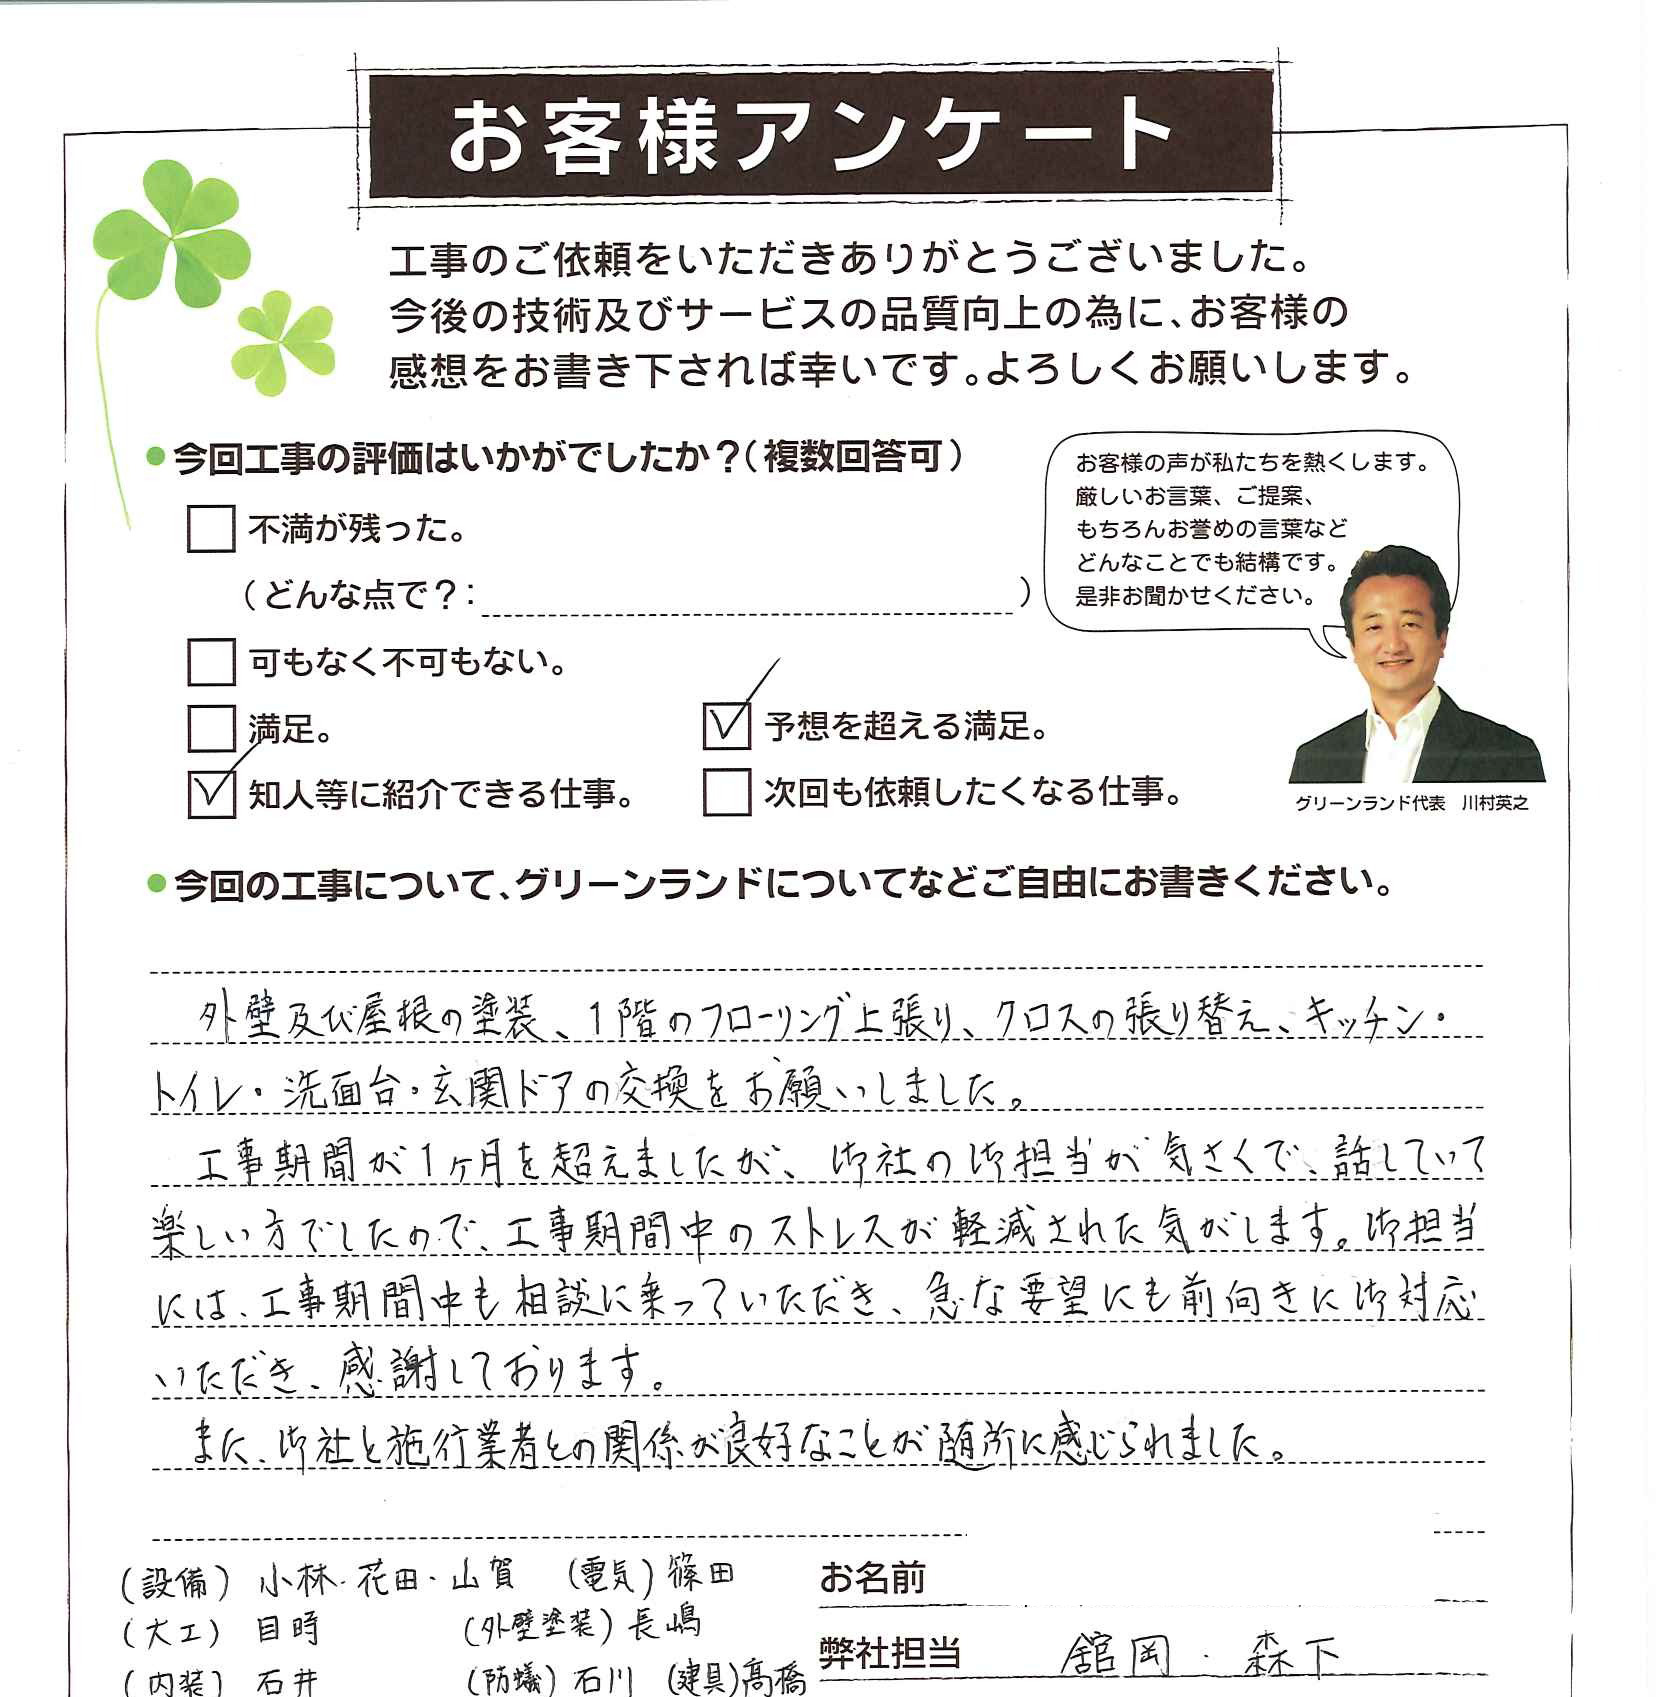 お客様アンケート
工事のご依頼をいただきありがとうございました。
今後の技術及びサービスの品質向上の為に、お客様の
感想をお書き下されば幸いです。よろしくお願いします。
●今回工事の評価はいかがでしたか？（複数回答可）
お客様の声が私たちを熱くします。
厳しいお言葉、ご提案、
もちろんお誉めの言葉など
どんなことでも結構です。
是非お聞かせください。
グリーンランド代表 川村英之
不満が残った。
（どんな点で？： ）
可もなく不可もない。
満足。
予想を超える満足。
知人等に紹介できる仕事。
次回も依頼したくなる仕事。
●今回の工事について、グリーンランドについてなどご自由にお書きください。
外壁及び屋根の塗装、1階のフローリング上張り、クロスの張り替え、キッチン・
トイレ・洗面台・玄関ドアの交換をお願いしました。
工事期間が1ヶ月を超えましたが、御社の御担当が気さくで、話していて
楽しい方でしたので、工事期間中のストレスが軽減された気がします。御担当
には、工事期間中も相談に乗っていただき、急な要望にも前向きに御対応
いただき、感謝しております。
また、御社と施行業者との関係が良好なことが随所に感じられました。
（設備） 小林・花田・山賀 （電気）篠田
（大工） 目時 （外壁塗装）長嶋
（内装） 石井 （防蟻）石川 （建具）高橋
お名前
弊社担当 舘岡・森下